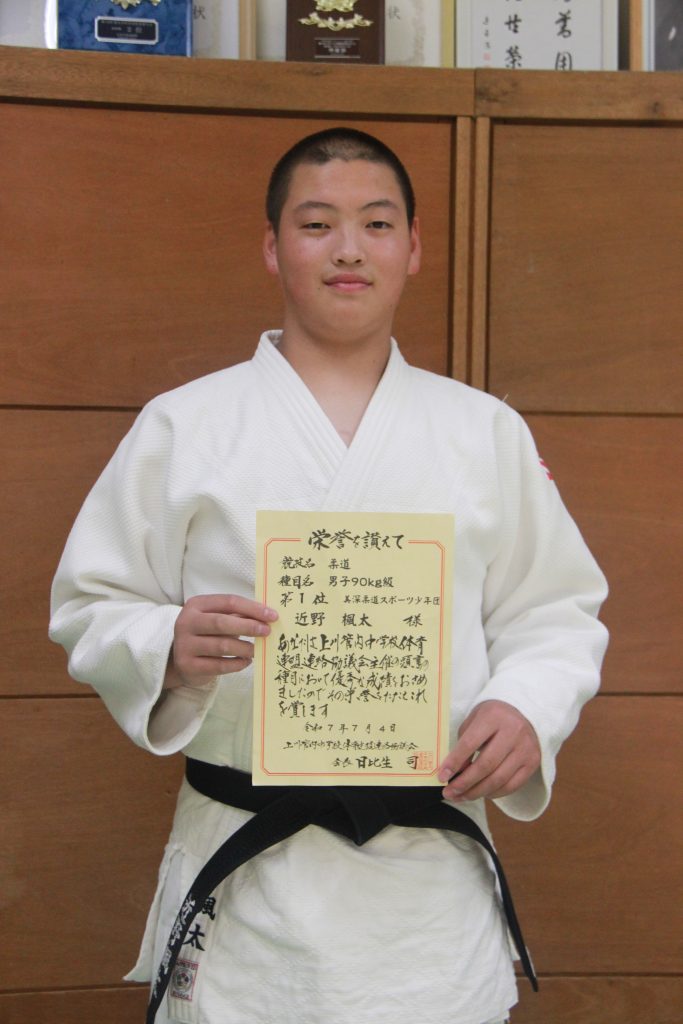 状
状
栄誉を讃えて
競技名 柔道
種目名 男子90kg級
第1位 美深柔道スポーツ少年団
近野 楓太 様
あなたは上川管内中学校体育
連盟連絡協議会主催の頭書の
種目において優秀な成績をおさめ
ましたのでその栄誉をたたえこれ
を賞します
令和7年7月4日
上川管内中学校体育連盟連絡協議会
会長 日比生 司
楓太